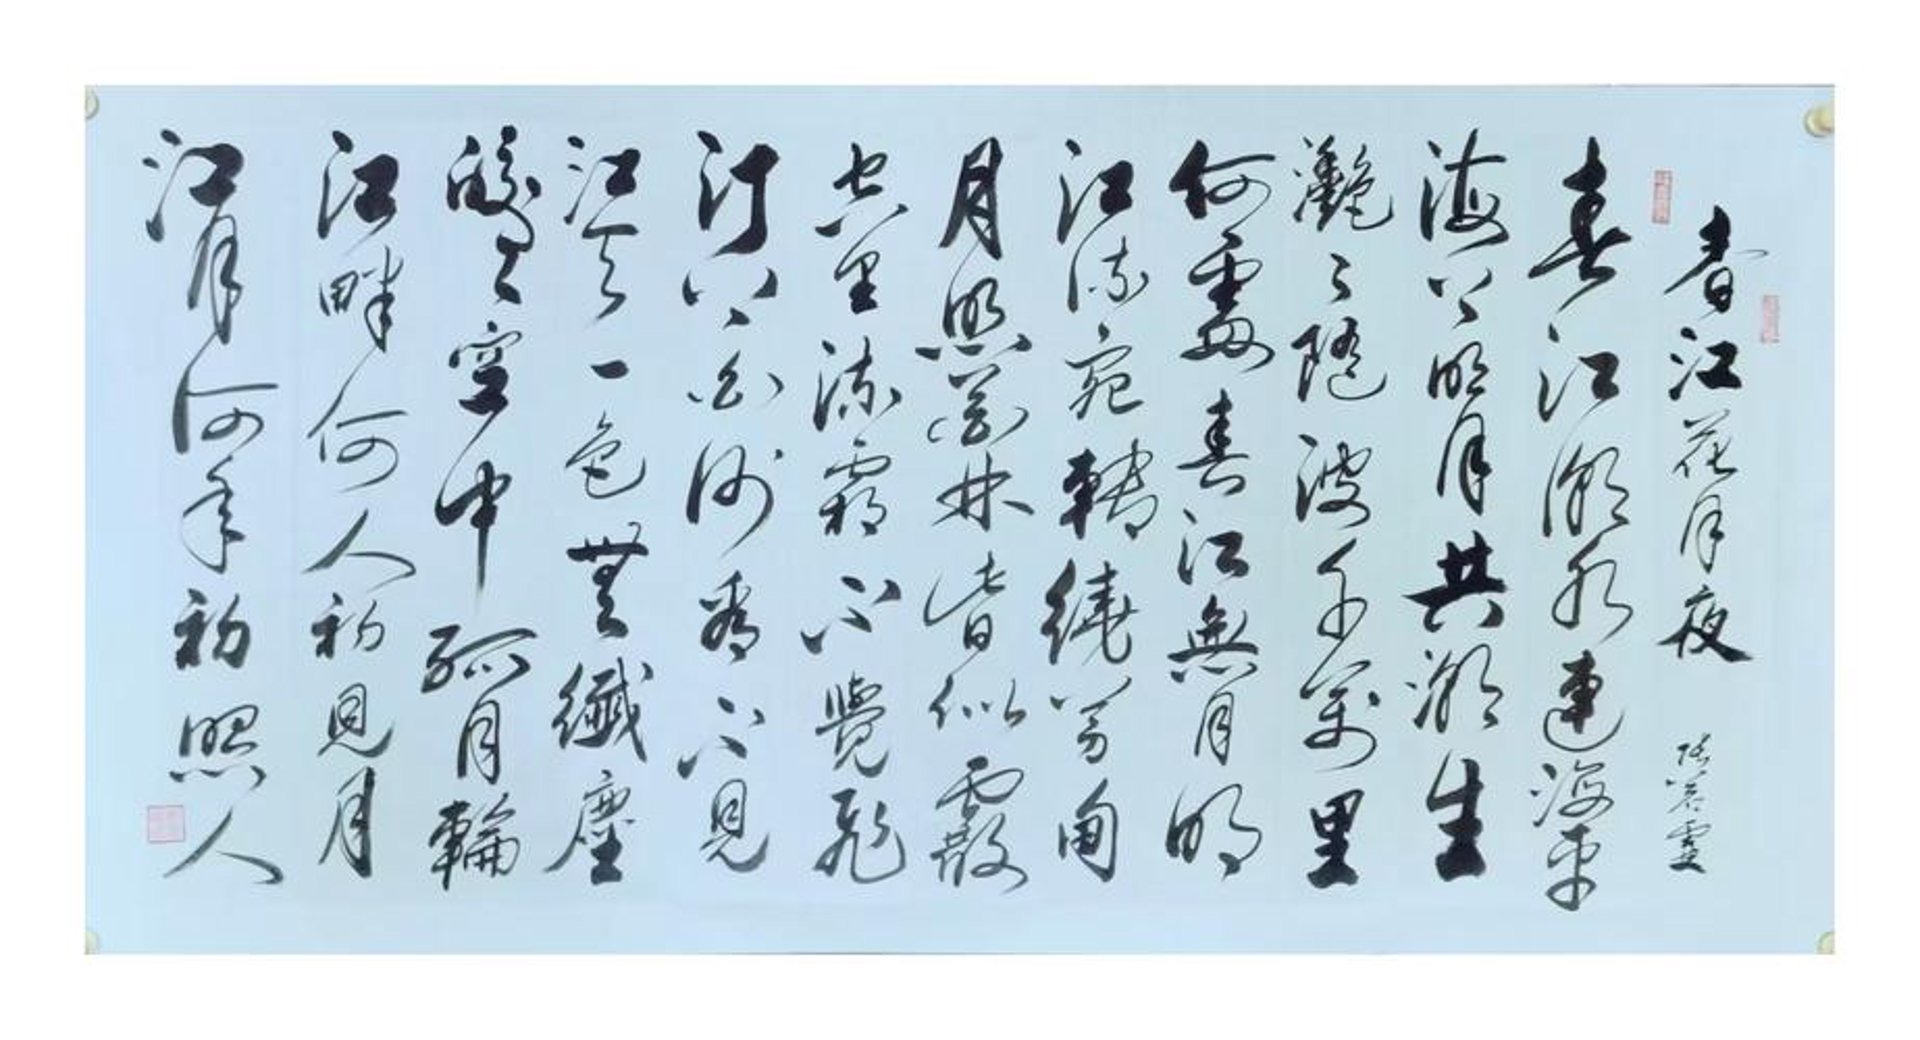 春江花月夜
春江潮水連海平
海上明月共潮生
灧々隨波千萬里
何處春江無月明
江流宛轉繞芳甸
月照花林皆似霰
空里流霜不覺飛
汀上白沙看不見
江天一色無纖塵
皎皎空中孤月輪
江畔何人初見月
江月何年初照人